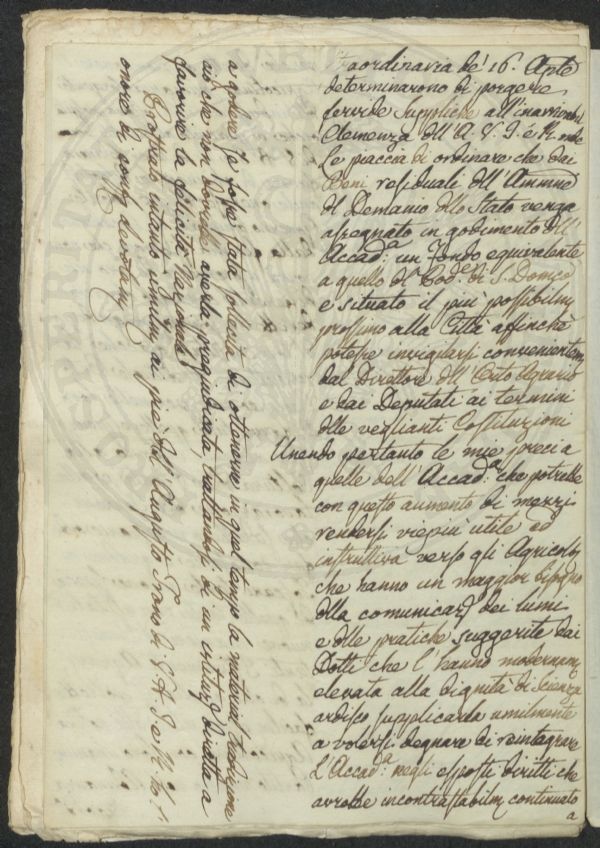 aordinaria de' 16. Aple
determinarono di porgere
fervide Suppliche all'inarrivabil
Clemenza dell'A. V. I. e R. onde
Le piaccia di ordinare che dai
Beni residuali dell'Ammne
del Demanio dello Stato venga
assegnato in godimento all'
Accad.a un Fondo equivalente
a quello di S. Domco
e situato il più possibilm
prossimo alla Città affinchè
potesse invigilarsi convenientem
dal Direttore dell'Orto Agrario
e dai Deputati ai termini
delle veglianti Costituzioni
Unendo pertanto le mie preci a
quelle dell'Accad.a che potrebbe
con questo aumento di mezzi
rendersi viepiù utile ed
instruttiva verso gli Agricolt
che hanno un maggior bisogno
della comunicaz dei lumi
e delle pratiche suggerite dai
Dotti che l'hanno modernam
elevata alla dignità di Scienza
ardisco supplicarla umilmente
a volersi degnare di reintegrare
L'Accad.a negli esposti diritti che
avrebbe incontrastabilm continuato
a
a godere se fosse stata sollecita di ottenerne in quel tempo la material tradizione
ciò che non dovrebbe averla pregiudicata trattandosi di un istituto diretto a
favorire la felicità Nazionale
Prostrato intanto umilm ai piè dell'Augusto Trono di V. A. I. e R. ho l'
onore di devotam